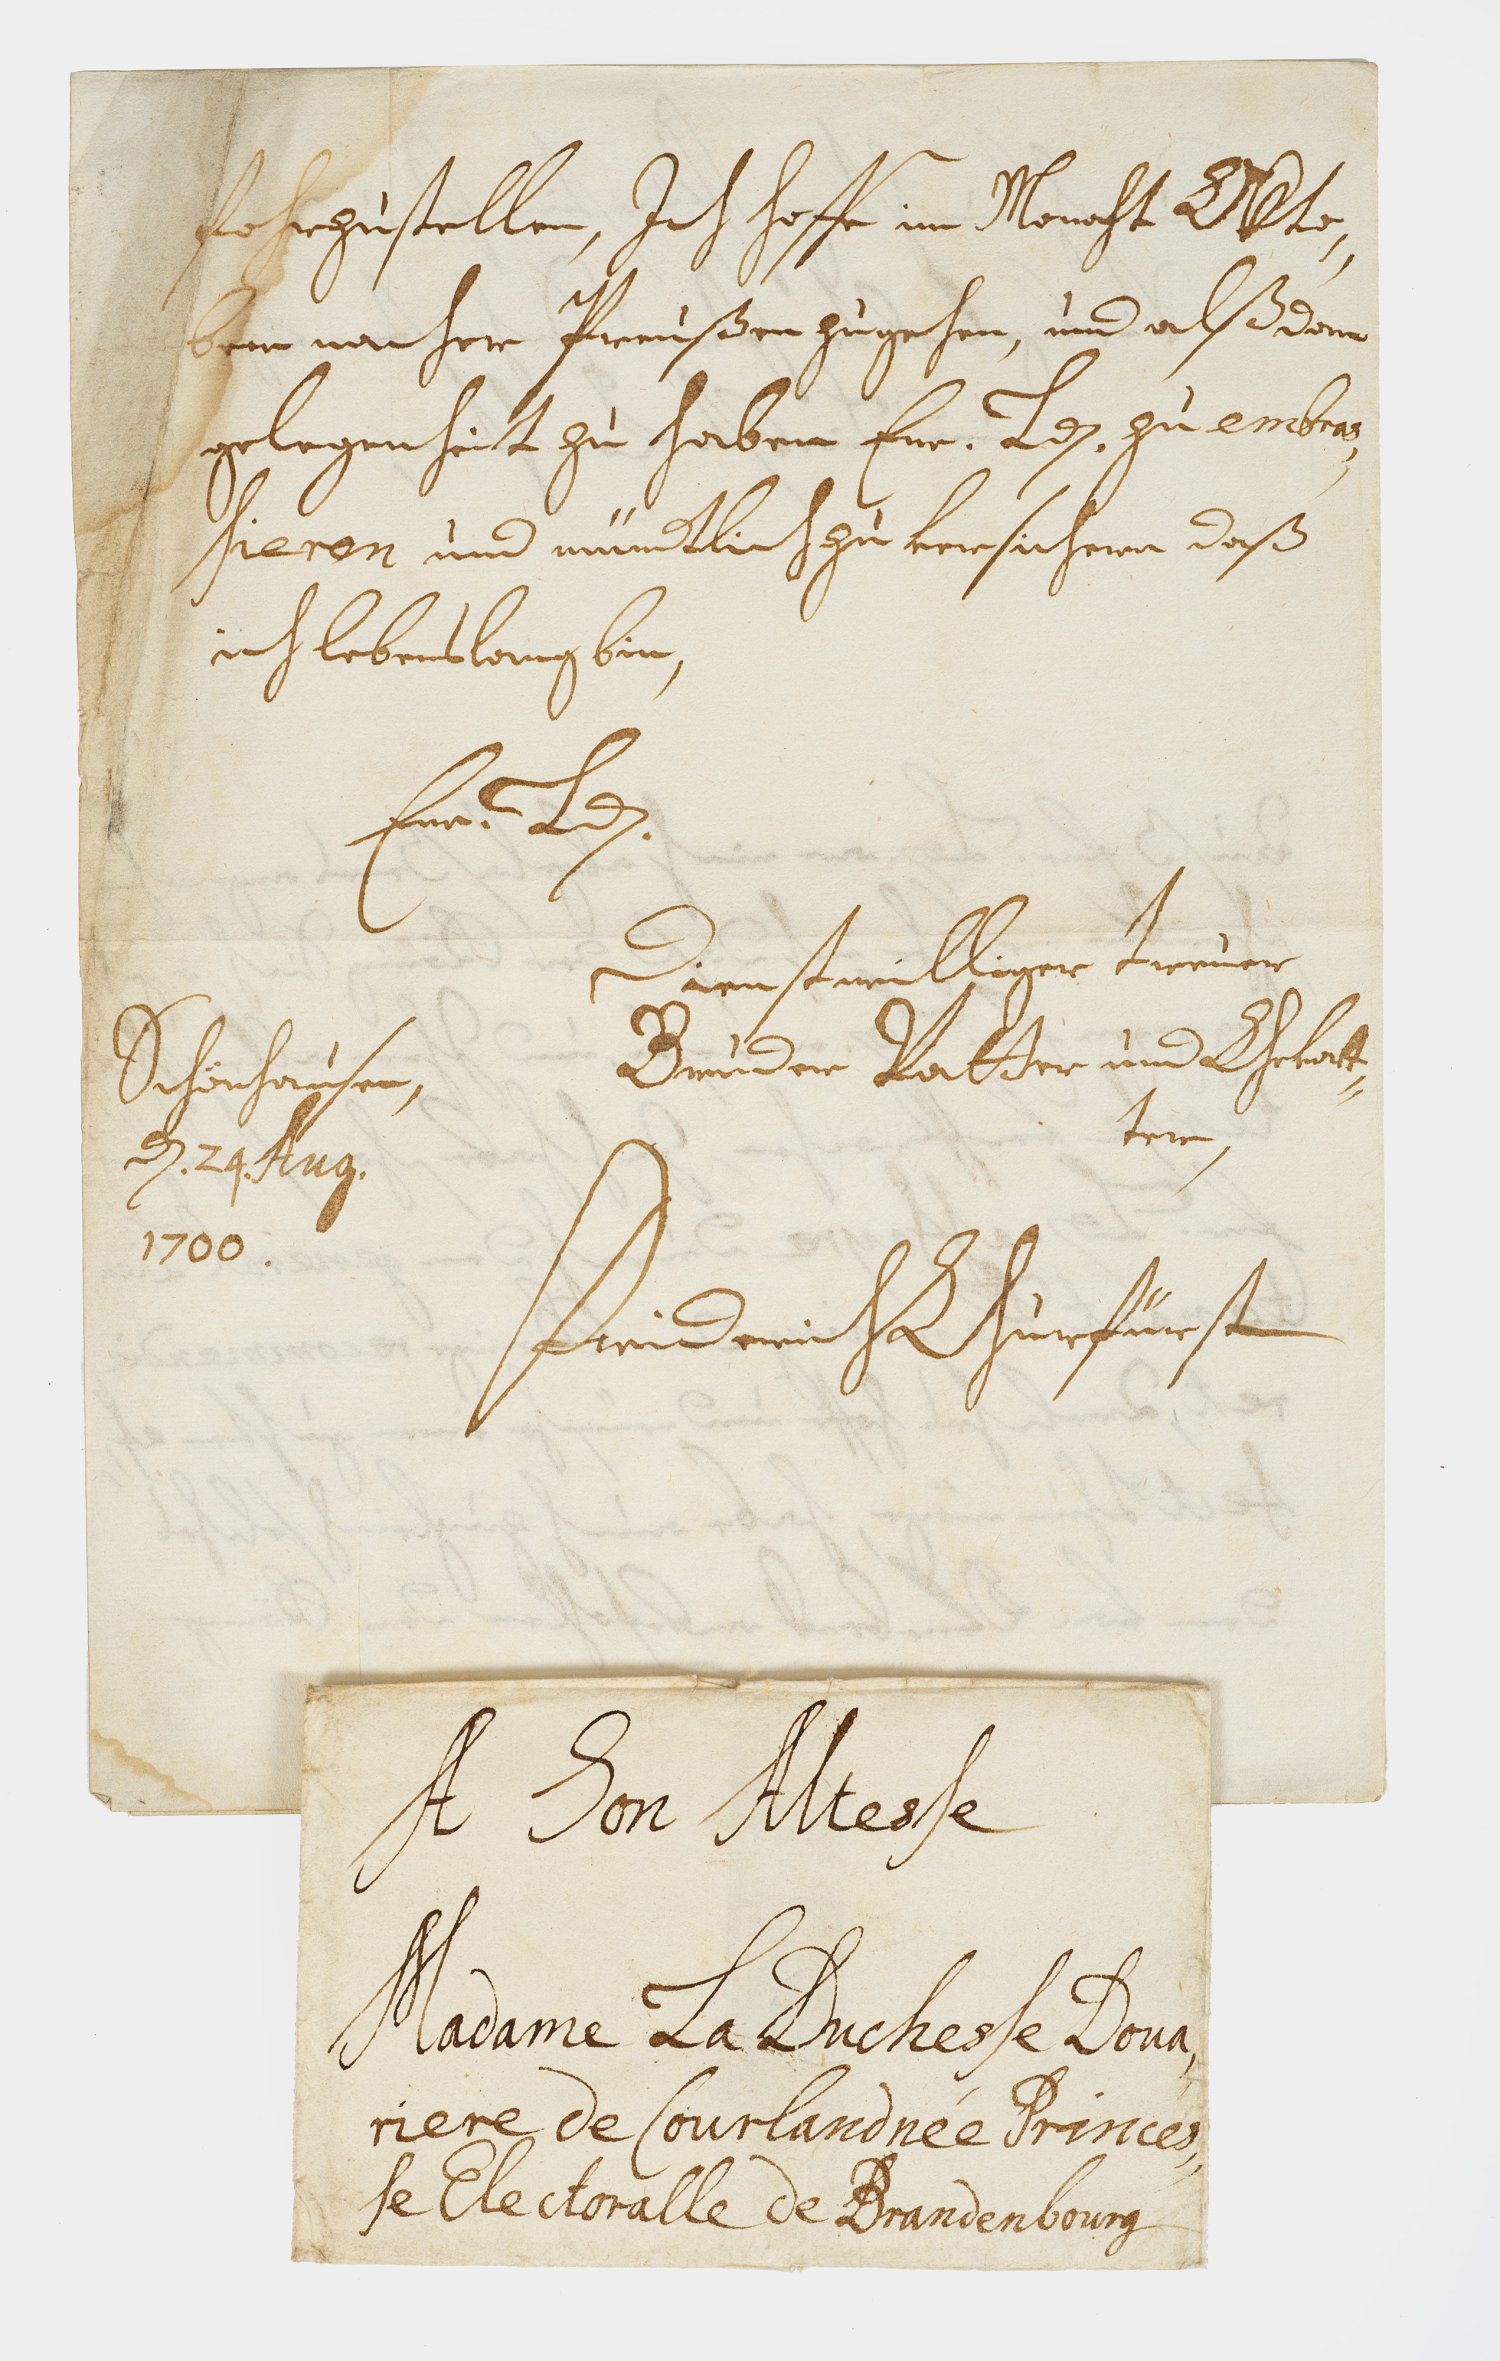 fohrzustellen, Ich hoffe im Monaht Octo,
bern nacher Preußen zugehen, und alß dan
gelegenheit zu haben Ew. Ld. zu embras,
sieren und mündtlich zu versichern daß
ich lebenslang bin,
Ew. Ld.
Dienstwilliger treuer
Bruder Vatter und Ehevatt,
ter,
Schönhausen,
d. 24. Aug.
1700.
Friderich Churfürst
A Son Altesse
Madame La Duchesse Doua,
riere de Courland née Princes,
se Electoralle de Brandenbourg